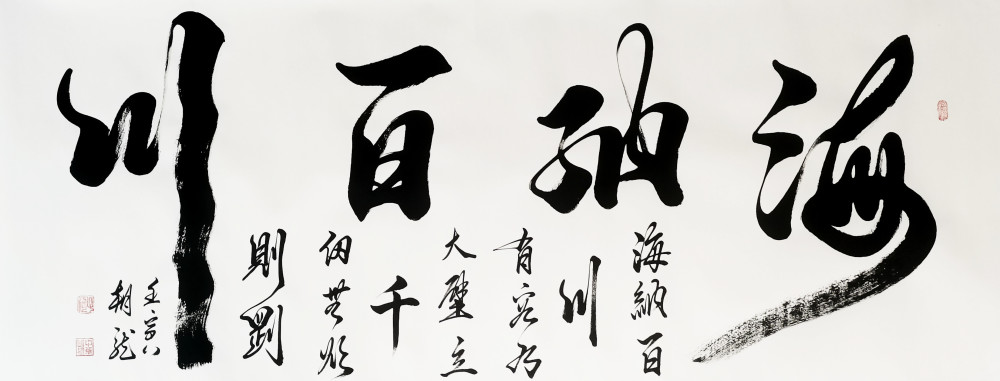 海納百川
海納百
川
有容乃
大壁立
千
仞無欲
則剛
壬寅
朝龍